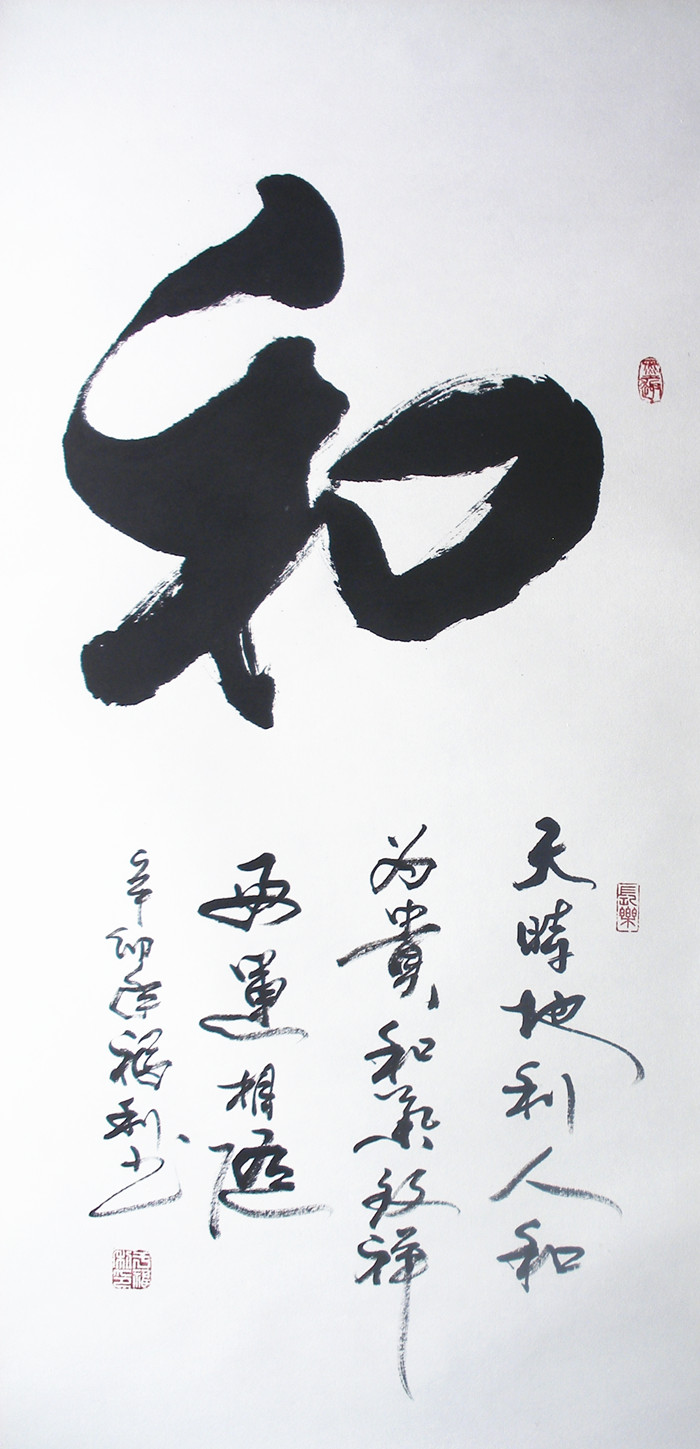 和
天時地利人和
为貴和氣致祥
運相随
辛卯福利书
長樂